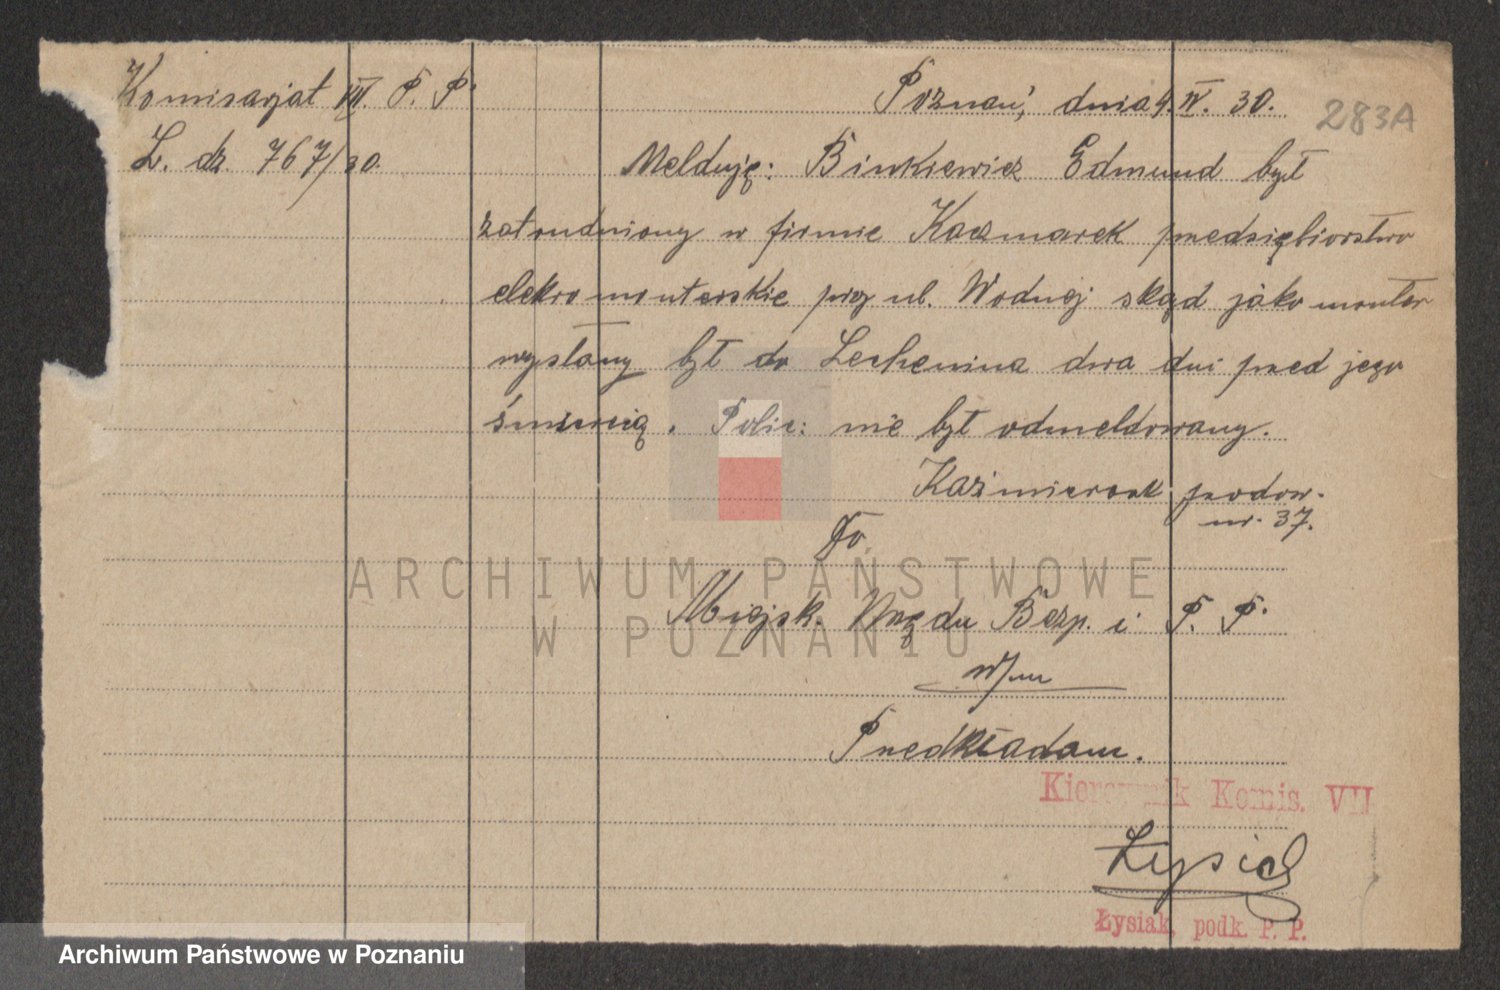 Komisarjat VII. P. P.
Poznań, dnia 4.IV. 30.
283A
L. dz. 767/30.
Melduję: Binkiewicz Edmund był
zatrudniony w firmie Kaczmarek przedsiębiorstwo
elekromonterskie przy ul. Wodnej skąd jako monter
wysłany był do Lechenina dwa dni przed jego
śmiercią. Polic: nie był odmeldowany.
Kaźmierczak przodow.
nr. 37.
Do
ARCHIWUM PAŃSTWOWE
Miejsk. Urzędu Bezp. i P. P.
W POZNANIU
w/m
Przedkładam.
Kierownik Komis. VII
Łysiak
Łysiak, podk. P. P.
Archiwum Państwowe w Poznaniu